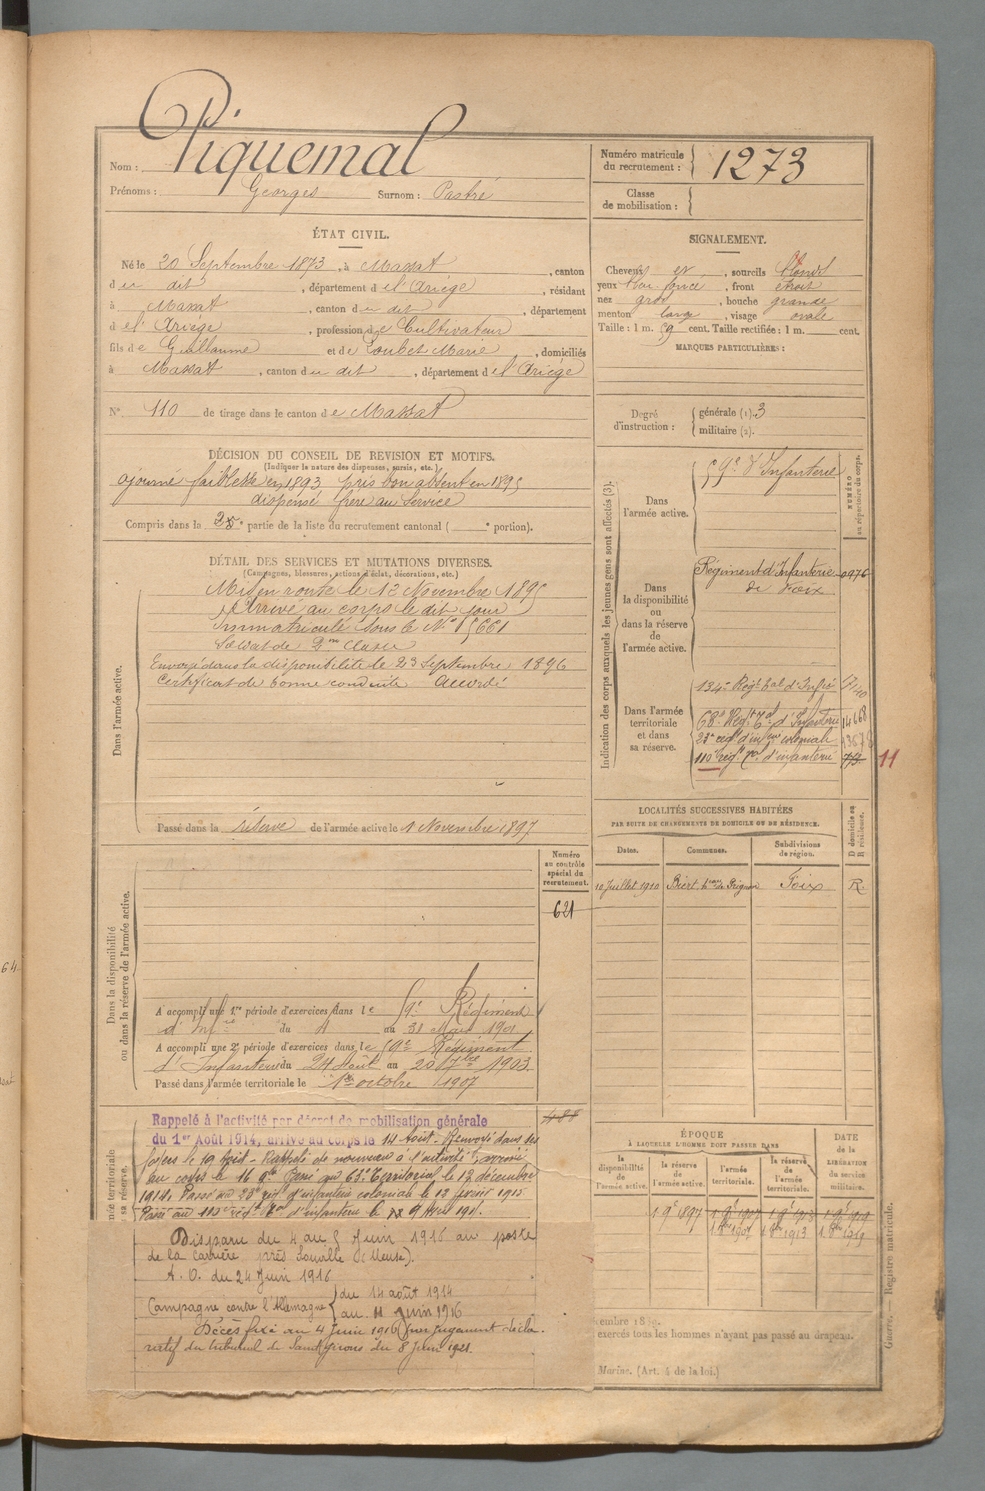 Nom : Piquemal
Prénoms : Georges Surnom : Pastré
Numéro matricule du recrutement : 1273
Classe de mobilisation :
ÉTAT CIVIL.
Né le 20 Septembre 1873, à Massat, canton
du dit, département de l'Ariège, résidant
à Massat, canton du dit, département
de l'Ariège, profession de Cultivateur
fils de Guillaume et de Loubet Marie, domiciliés
à Massat, canton du dit, département de l'Ariège
N° 110 de tirage dans le canton de Massat
SIGNALEMENT.
Cheveux et, sourcils blonds
yeux bleu foncé, front étroit
nez gros, bouche grande
menton large, visage ovale
Taille : 1 m. 59 cent. Taille rectifiée : 1 m. cent.
MARQUES PARTICULIÈRES :
Degré d'instruction : générale (1). 3
militaire (2).
DÉCISION DU CONSEIL DE REVISION ET MOTIFS.
(Indiquer la nature des dispenses, sursis, etc.)
ajourné faiblesse en 1893 pris bon absent en 1895
dispensé frère au Service
Compris dans la partie de la liste du recrutement cantonal ( portion).
DÉTAIL DES SERVICES ET MUTATIONS DIVERSES.
(Campagnes, blessures, actions d'éclat, décorations, etc.)
Dans l'armée active.
Mis en route le 12 Novembre 1895
Arrivé au corps le dit jour
Immatriculé sous le N°
Soldat de 2me classe
Envoyé dans la disponibilité le 23 Septembre 1896
Certificat de bonne conduite Accordé
Passé dans la réserve de l'armée active le 1 Novembre 1897
Indication des corps auxquels les jeunes gens sont affectés (3).
NUMÉRO au répertoire du corps.
Dans l'armée active.
59e d'Infanterie
Dans la disponibilité ou dans la réserve de l'armée active.
Régiment d'Infanterie 0976
de Foix
Dans l'armée territoriale et dans sa réserve.
134e Régt tal d'Infie
68e Regt Tal d'Infanterie 14668
23e regt d'infrie coloniale
110e régt Tal d'infanterie
11
LOCALITÉS SUCCESSIVES HABITÉES
PAR SUITE DE CHANGEMENTS DE DOMICILE OU DE RÉSIDENCE.
Dates. Communes. Subdivisions de région. D domicile ou R résidence.
10 Juillet 1910 Biert, Foix R.
Dans la disponibilité ou dans la réserve de l'armée active.
Numéro au contrôle spécial du recrutement.
621
A accompli une 1re période d'exercices dans le 59e Régiment
d'Infrie du 4 au 31 Mars 1901
A accompli une 2e période d'exercices dans le 59e Régiment
d'Infanterie du 24 Août au 20 7bre 1903
Passé dans l'armée territoriale le 1er octobre 1907
488
Rappelé à l'activité par décret de mobilisation générale
du 1er Août 1914, arrivé au corps le 14 Août. Renvoyé dans ses
foyers le 19 Août - Rappelé de nouveau à l'activité, arrivé
au corps le 16 Passé au 68e Territorial le 17 décembre
1914. Passé au 23e regt d'infanterie coloniale le 12 février 1915
Passé au 110e régt Tal d'infanterie le 9 Avril 1915.
Disparu du 4 au 5 Juin 1916 au poste
de la carrière près Souville (Meuse).
A. O. du 24 Juin 1916
Campagne contre l'Allemagne du 14 août 1914
au Juin 1916
Décès fixé au 4 Juin 1916 par jugement décla-
ratif du tribunal de Saint Girons du 8 Juin 1921.
ÉPOQUE
À LAQUELLE L'HOMME DOIT PASSER DANS
la disponibilité de l'armée active. la réserve de l'armée active. l'armée territoriale. la réserve de l'armée territoriale.
DATE de la LIBÉRATION du service militaire.
1 9bre 1897 1 9bre 1907 1 9bre 1913 1 9bre 1919
1 8bre 1907 1 8bre 1913 1 8bre 1919
exercés tous les hommes n'ayant pas passé au drapeau.
Marine. (Art. 4 de la loi.)
Guerre. — Registre matricule.